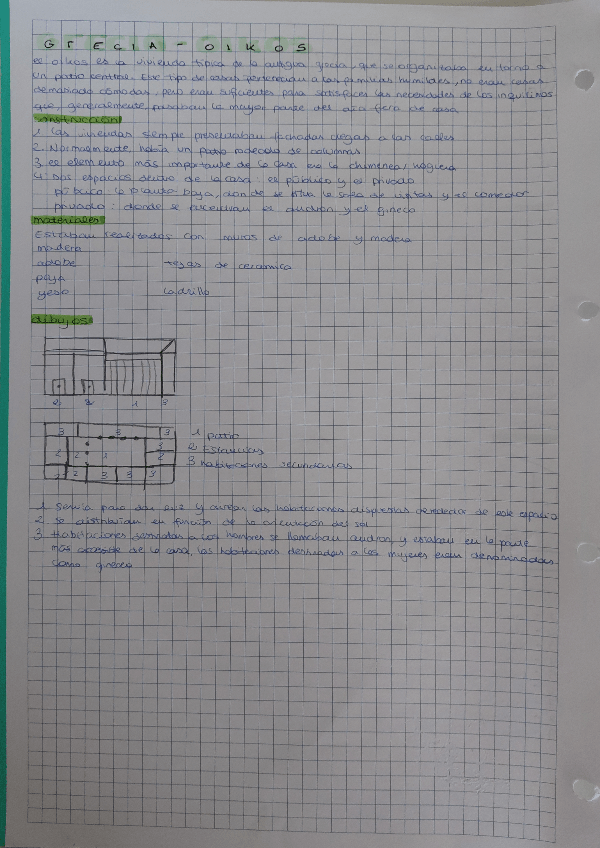 GRECIA - OIKOS
el oikos es la vivienda típica de la antigua grecia, que se organizaba en torno a
un patio central. Este tipo de casas pertenecían a las familias humildes, no eran casas
demasiado cómodas, pero eran suficientes para satisfacer las necesidades de los inquilinos
que, generalmente, pasaban la mayor parte del día fuera de casa
construcción
1. Las viviendas siempre presentaban fachadas ciegas a las calles
2. Normalmente había un patio rodeado de columnas
3. el elemento más importante de la casa era la chimenea/hoguera
4. Dos espacios dentro de la casa: el público y el privado
público: la planta baja, donde se situa la sala de visitas y el comedor
privado: donde se encuentran el andron y el gineceo
materiales
Estaban realizados con muros de adobe y madera
madera
adobe tejas de cerámica
paja
yeso ladrillo
dibujos
2 2 1 3
3 3 3
3
2 2 1 2
2 2 3 3 3
1 patio
2 Estancias
3 habitaciones secundarias
1 Servía para dar luz y airear las habitaciones dispuestas alrededor de este espacio
2 Se distribuían en función de la orientación del sol
3 Habitaciones destinadas a los hombres se llamaban andron, y estaban en la parte
más accesible de la casa, las habitaciones destinadas a las mujeres eran denominadas
como gineceo